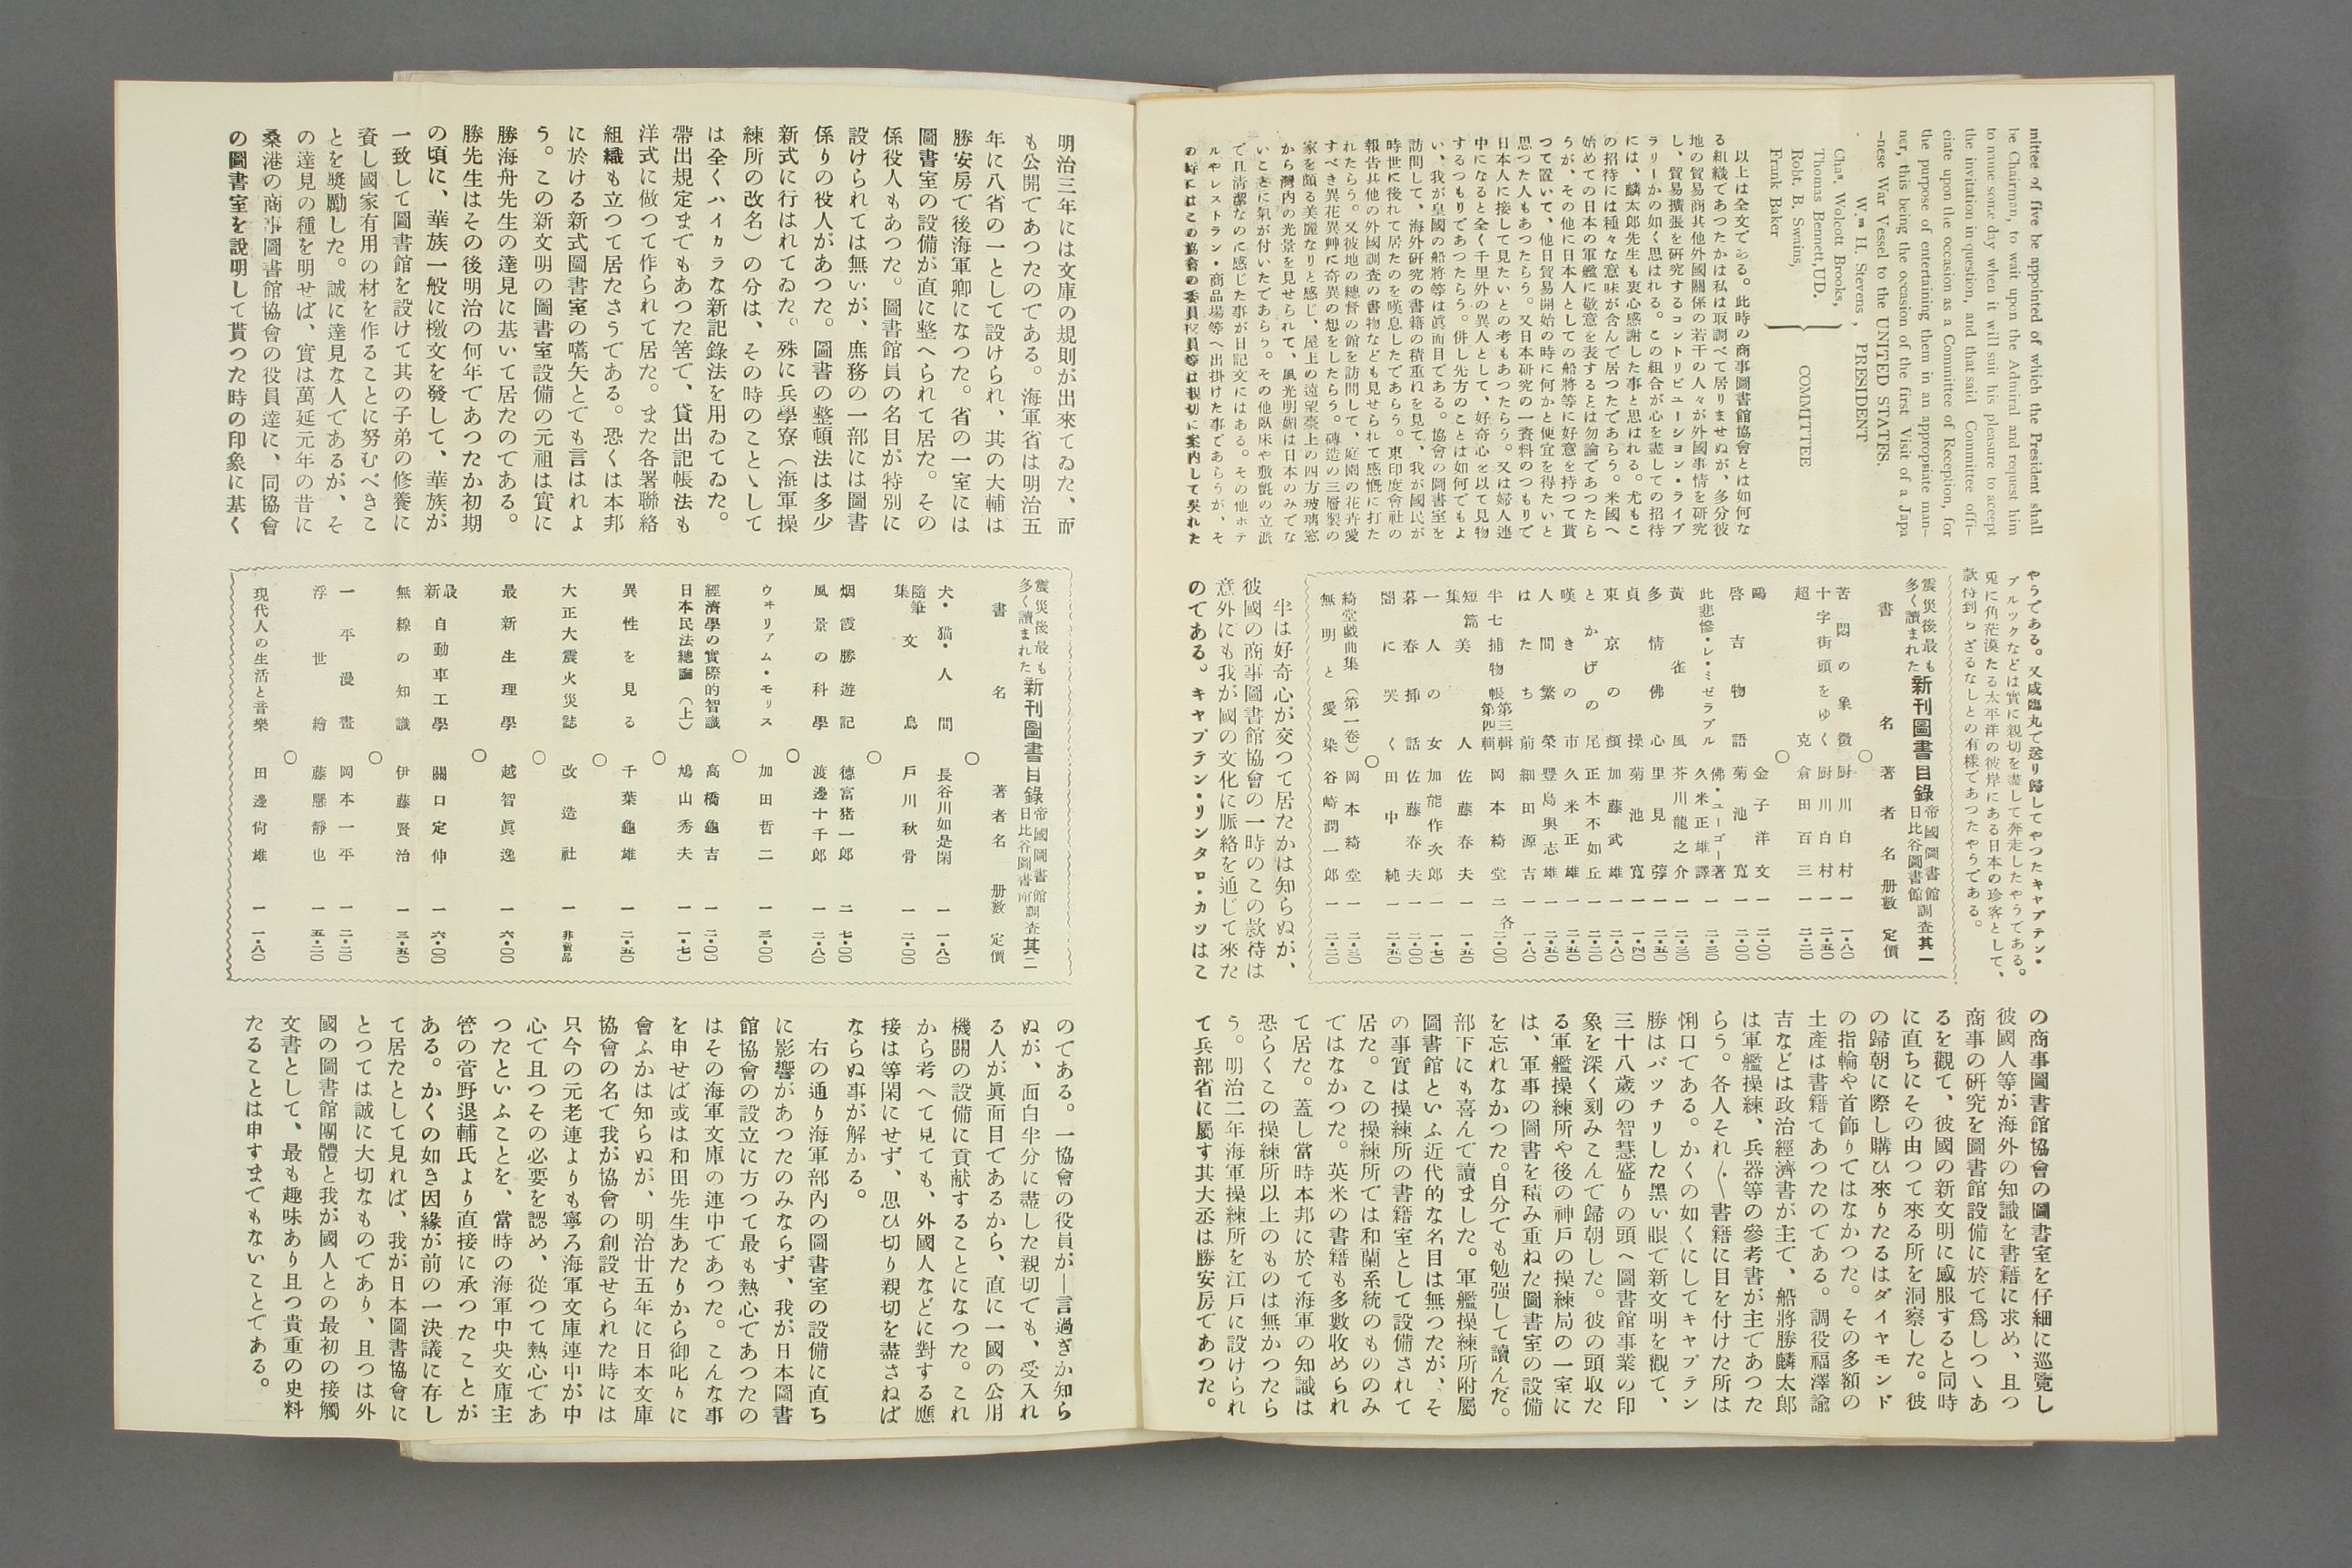 mittee of five be appointed of which the President shall
be Chairman, to wait upon the Admiral and request him
to name some day when it will suit his pleasure to accept
the invitation in question, and that said Committee offi-
ciate upon the occasion as a Committee of Reception, for
the purpose of entertaining them in an appropriate man-
ner, this being the occasion of the first Visit of a Japa
-nese War Vessel to the UNITED STATES.
W.m H. Stevens, PRESIDENT
Chas. Wolcott Brooks,
Thomas Bennett, UD.
Robt. B. Swains,
Frank Baker
COMMITTEE
以上は全文である。此時の商事圖書館協會とは如何な
る組織であつたかは私は取調べて居りませぬが、多分彼
地の貿易商其他外國關係の若干の人々が外國事情を研究
し、貿易擴張を研究するコントリビユーシヨン・ライブ
ラリーかの如く思はれる。この組合が心を盡しての招待
には、麟太郎先生も衷心感謝した事と思はれる。尤もこ
の招待には種々な意味が含んで居つたであらう。米國へ
始めての日本の軍艦に敬意を表するとは勿論であつたら
うが、その他に日本人としての船將等に好意を持つて貰
つて置いて、他日貿易開始の時に何かと便宜を得たいと
思つた人もあつたらう。又日本研究の一資料のつもりで
日本人に接して見たいとの考もあつたらう。又は婦人連
中になると全く千里外の異人として、好奇心を以て見物
するつもりであつたらう。併し先方のことは如何でもよ
い、我が皇國の船將等は眞面目である。協會の圖書室を
訪問して、海外研究の書籍の積重れを見て、我が國民が
時世に後れて居たのを嘆息したであらう。東印度會社の
報告其他の外國調査の書物なども見せられて感慨に打た
れたらう。又彼地の總督の館を訪問して、庭園の花卉愛
すべき異花異艸に奇異の想をしたらう。磚造の三層製の
家を頗る美麗なりと感じ、屋上の遠望臺上の四方玻璃窓
から灣内の光景を見せられて、風光明媚は日本のみでな
いことに氣が付いたであらう。その他臥床や敷氈の立派
で且清潔なのに感じた事が日記文にはある。その他ホテ
ルやレストラン・商品場等へ出掛けた事であらうが、そ
の時にはこの協會の委員役員等は親切に案内して呉れた
やうである。又咸臨丸で送り歸してやつたキャプテン・
ブルックなどは實に親切を盡して奔走したやうである。
兎に角茫漠たる太平洋の彼岸にある日本の珍客として、
款待到らざるなしとの有樣であつたやうである。
震災後最も多く讀まれた新刊圖書目錄 帝國圖書館 日比谷圖書館 調査 其一
書名 著者名 册數 定價
○
苦悶の象徵 厨川白村 一 一・八〇
十字街頭をゆく 厨川白村 一 二・五〇
超克 倉田百三 一 二・二〇
○
鷗 金子洋文 一 二・〇〇
啓吉物語 菊池寬 一 二・〇〇
此悲慘・レ・ミゼラブル 佛・ユーゴー著 久米正雄譯 一 二・三〇
黃雀風 芥川龍之介 一 二・三〇
多情佛心 里見弴 一 二・五〇
貞操 菊池寬 一 一・四〇
東京の顏 加藤武雄 一 二・八〇
とかげの尾 正木不如丘 一 二・二〇
嘆きの市 久米正雄 一 二・五〇
人間繁榮 豐島與志雄 一 二・五〇
はたち前 細田源吉 一 一・八〇
半七捕物帳 第三輯 第四輯 岡本綺堂 二 各二・〇〇
短篇集 美人 佐藤春夫 一 一・五〇
一人の女 加能作次郎 一 一・七〇
暮春插話 佐藤春夫 一 二・〇〇
闇に哭く 田中純 一 二・五〇
○
綺堂戯曲集（第一卷） 岡本綺堂 一 二・三〇
無明と愛染 谷崎潤一郎 一 二・二〇
半は好奇心が交つて居たかは知らぬが、
彼國の商事圖書館協會の一時のこの款待は
意外にも我が國の文化に脈絡を通じて來た
のである。キャプテン・リンタロ・カツはこ
の商事圖書館協會の圖書室を仔細に巡覽し
彼國人等が海外の知識を書籍に求め、且つ
商事の硏究を圖書館設備に於て爲しつゝあ
るを觀て、彼國の新文明に感服すると同時
に直ちにその由つて來る所を洞察した。彼
の歸朝に際し購ひ來りたるはダイヤモンド
の指輪や首飾りではなかつた。その多額の
土產は書籍てあつたのである。調役福澤諭
吉などは政治經濟書が主で、船將勝麟太郎
は軍艦操練、兵器等の參考書が主であつた
らう。各人それ／＼書籍に目を付けた所は
悧口である。かくの如くにしてキャプテン
勝はパッチリした黑い眼で新文明を觀て、
三十八歲の智慧盛りの頭へ圖書館事業の印
象を深く刻みこんで歸朝した。彼の頭取た
る軍艦操練所や後の神戶の操練局の一室に
は、軍事の圖書を積み重ねた圖書室の設備
を忘れなかつた。自分でも勉强して讀んだ。
部下にも喜んで讀ました。軍艦操練所附屬
圖書館といふ近代的な名目は無つたが、そ
の事實は操練所の書籍室として設備されて
居た。この操練所では和蘭系統のもののみ
ではなかつた。英米の書籍も多數收められ
て居た。蓋し當時本邦に於て海軍の知識は
恐らくこの操練所以上のものは無かつたら
う。明治二年海軍操練所を江戶に設けられ
て兵部省に屬す其大丞は勝安房であつた。
明治三年には文庫の規則が出來てゐた、而
も公開であつたのである。海軍省は明治五
年に八省の一として設けられ、其の大輔は
勝安房で後海軍卿になつた。省の一室には
圖書室の設備が直に整へられて居た。その
係役人もあつた。圖書館員の名目が特別に
設けられては無いが、庶務の一部には圖書
係りの役人があつた。圖書の整頓法は多少
新式に行はれてゐた。殊に兵學寮（海軍操
練所の改名）の分は、その時のことゝして
は全くハイカラな新記錄法を用ゐてゐた。
帶出規定までもあつた筈で、貸出記帳法も
洋式に做つて作られて居た。また各署聯絡
組織も立つて居たさうである。恐くは本邦
に於ける新式圖書室の嚆矢とでも言はれよ
う。この新文明の圖書室設備の元祖は實に
勝海舟先生の達見に基いて居たのてある。
勝先生はその後明治の何年であつたか初期
の頃に、華族一般に檄文を發して、華族が
一致して圖書館を設けて其の子弟の修養に
資し國家有用の材を作ることに努むべきこ
とを奬勵した。誠に達見な人であるが、そ
の達見の種を明せば、實は萬延元年の昔に
桑港の商事圖書館協會の役員達に、同協會
の圖書室を說明して貰つた時の印象に基く
震災後最も多く讀まれた新刊圖書目錄 帝國圖書館 日比谷圖書館 調査 其二
書名 著者名 册數 定價
○
犬・猫・人間 長谷川如是閑 一 一・八〇
隨筆集 文鳥 戶川秋骨 一 二・〇〇
○
烟霞勝遊記 德富猪一郎 二 七・〇〇
風景の科學 渡邊十千郎 一 二・八〇
○
ウヰリアム・モリス 加田哲二 一 三・〇〇
○
經濟學の實際的智識 高橋龜吉 一 二・〇〇
日本民法總論（上） 鳩山秀夫 一 一・七〇
○
異性を見る 千葉龜雄 一 二・五〇
○
大正大震火災誌 改造社 一 非賣品
○
最新生理學 越智眞逸 一 六・〇〇
○
最新 自動車工學 關口定伸 一 六・〇〇
無線の知識 伊藤賢治 一 三・五〇
○
一平漫畫 岡本一平 一 二・二〇
浮世繪 藤懸靜也 一 五・二〇
○
現代人の生活と音樂 田邊尙雄 一 一・八〇
のである。一協會の役員が—言過ぎか知ら
ぬが、面白半分に盡した親切でも、受入れ
る人が眞面目であるから、直に一國の公用
機關の設備に貢献することになつた。これ
から考へて見ても、外國人などに對する應
接は等閑にせず、思ひ切り親切を盡さねば
ならぬ事が解かる。
右の通り海軍部内の圖書室の設備に直ち
に影響があつたのみならず、我が日本圖書
館協會の設立に方つて最も熱心であつたの
はその海軍文庫の連中てあつた。こんな事
を申せば或は和田先生あたりから御叱りに
會ふかは知らぬが、明治廿五年に日本文庫
協會の名で我が協會の創設せられた時には
只今の元老連よりも寧ろ海軍文庫連中が中
心で且つその必要を認め、從つて熱心であ
つたといふことを、當時の海軍中央文庫主
管の菅野退輔氏より直接に承つたことが
ある。かくの如き因緣が前の一決議に存し
て居たとして見れば、我が日本圖書協會に
とつては誠に大切なものであり、且つは外
國の圖書館團體と我が國人との最初の接觸
文書として、最も趣味あり且つ貴重の史料
たることは申すまてもないことである。